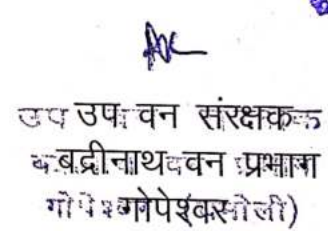 उप वन संरक्षक
बद्रीनाथ वन प्रभाग
गोपेश्वर